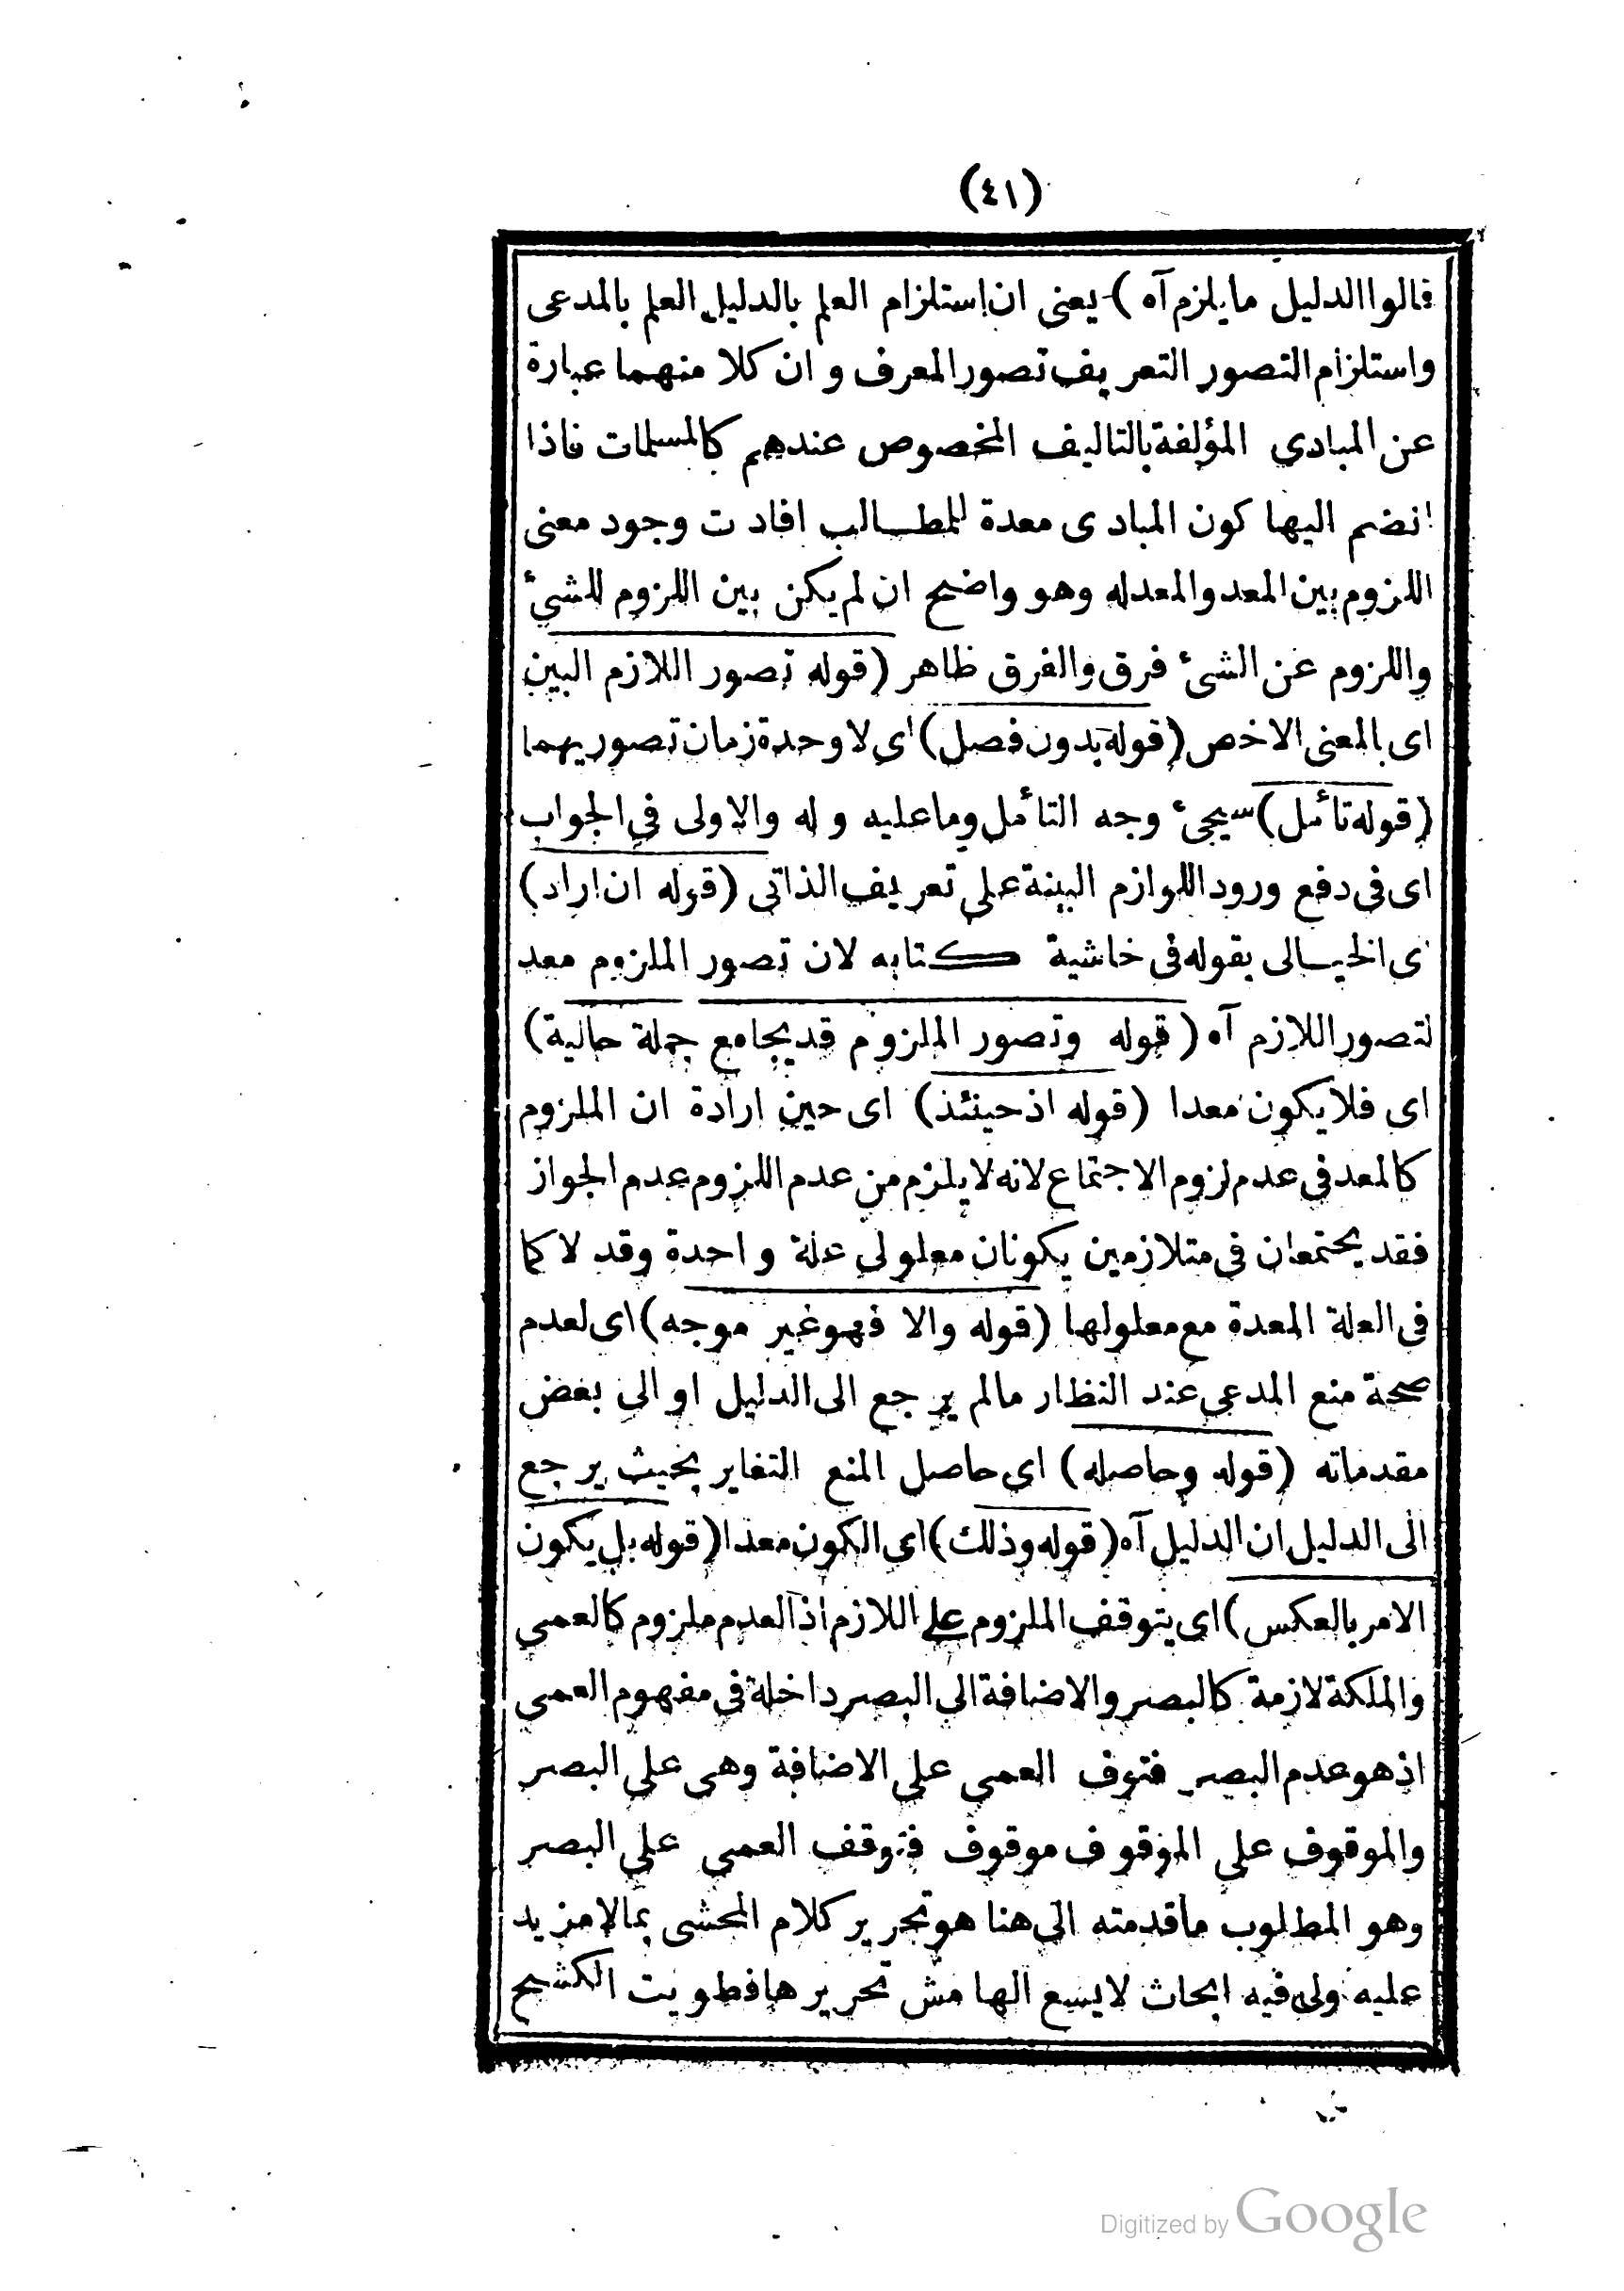 (٤١)
قالوا الدليل ما يلزم آه ) يعنى ان استلزام العلم بالدليل العلم بالمدعى
واستلزام التصور التعريف تصور المعرف و ان كلا منهما عبارة
عن المبادى المؤلفة بالتاليف المخصوص عندهم كالمسلمات فاذا
انضم اليها كون المبادى معدة للمطالب افادت وجود معنى
اللزوم بين المعد والمعدله وهو واضح ان لم يكن بين اللزوم للشئ
واللزوم عن الشئ فرق والفرق ظاهر (قوله تصور اللازم البين
اى بالمعنى الاخص (قوله بدون فصل) اى لا وحدة زمان تصوريهما
(قوله تأمل) سيجئ وجه التأمل وما عليه و له والاولى في الجواب
اى فى دفع ورود اللوازم البينة على تعريف الذاتى (قوله ان اراد)
اى الخيالى بقوله فى خاشية كتابه لان تصور الملزوم معد
لتصور اللازم آه (قوله وتصور الملزوم قد يجامع جملة حالية)
اى فلا يكون معدا (قوله اذ حينئذ) اى حين ارادة ان الملزوم
كالمعد فى عدم لزوم الاجتماع لانه لا يلزم من عدم اللزوم عدم الجواز
فقد يجتمعان فى متلازمين يكونان معلولى علة واحدة وقد لا كما
فى العلة المعدة مع معلولها (قوله والا فهو غير موجه) اى لعدم
صحة منع المدعى عند النظار ما لم يرجع الى الدليل او الى بعض
مقدماته (قوله وحاصله) اى حاصل المنع التغاير بحيث يرجع
الى الدليل ان الدليل آه (قوله وذلك) اى الكون معدا (قوله بل يكون
الامر بالعكس) اى يتوقف الملزوم على اللازم اذ العدم ملزوم كالعمى
والملكة لازمة كالبصر والاضافة الى البصر داخلة فى مفهوم العمى
اذ هو عدم البصر فتوف العمى على الاضافة وهى على البصر
والموقوف على الموقوف موقوف فتوقف العمى على البصر
وهو المطلوب ما قدمته الى هنا هو تحرير كلام المحشى بما لا مزيد
عليه ولى فيه ابحاث لا يسع الهامش تحريرها فطويت الكشح
Digitized by Google